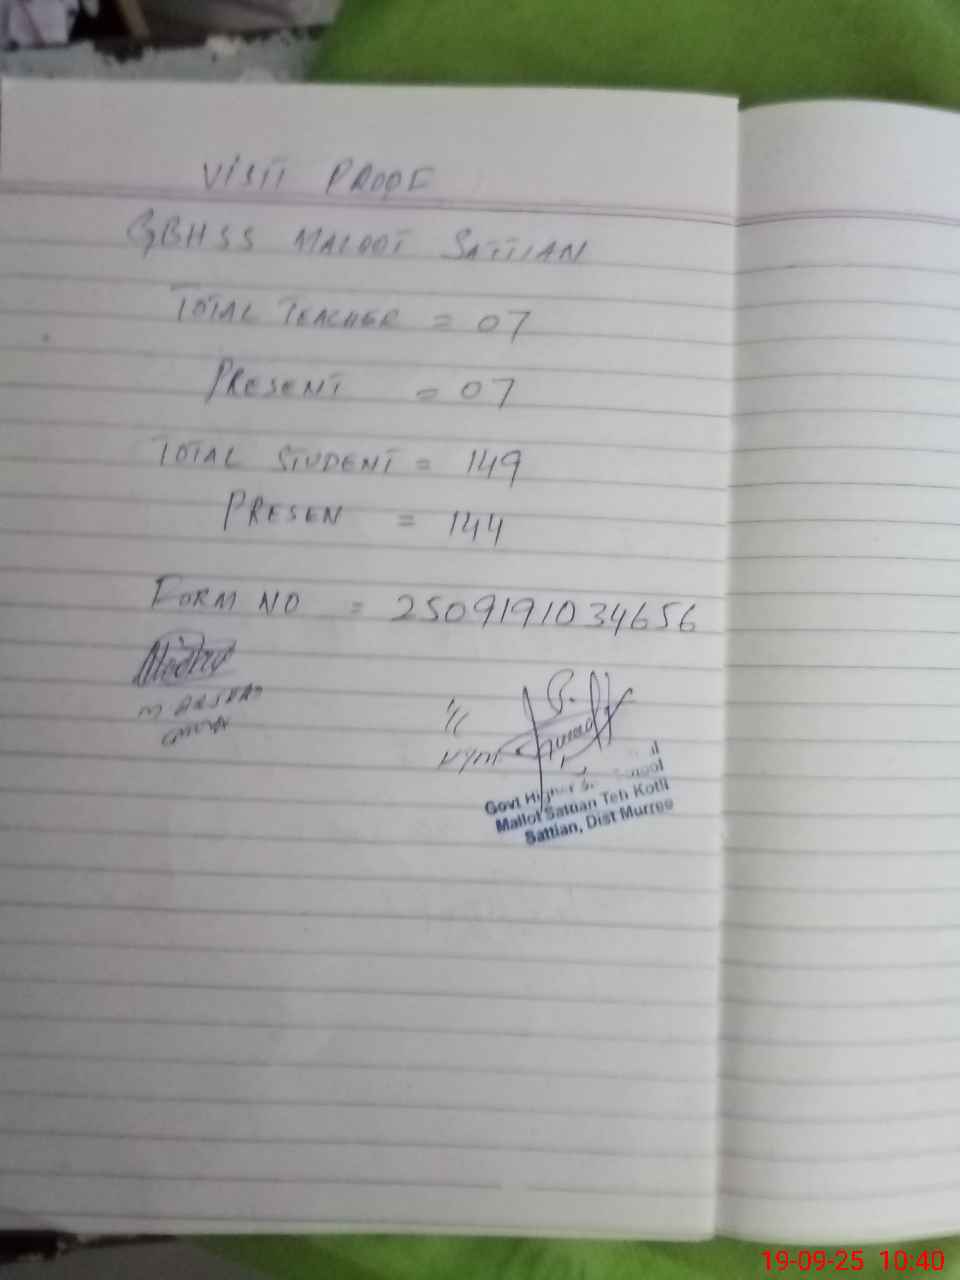 VISIT PROOF
GBHSS MALOOT SATTIAN
TOTAL TEACHER = 07
PRESENT = 07
TOTAL STUDENT = 149
PRESEN = 144
FORM NO = 2509191034656
M ARSHAD
Govt Higher School
Mallot Sattian Teh Kotli
Sattian, Dist Murree
19-09-25 10:40